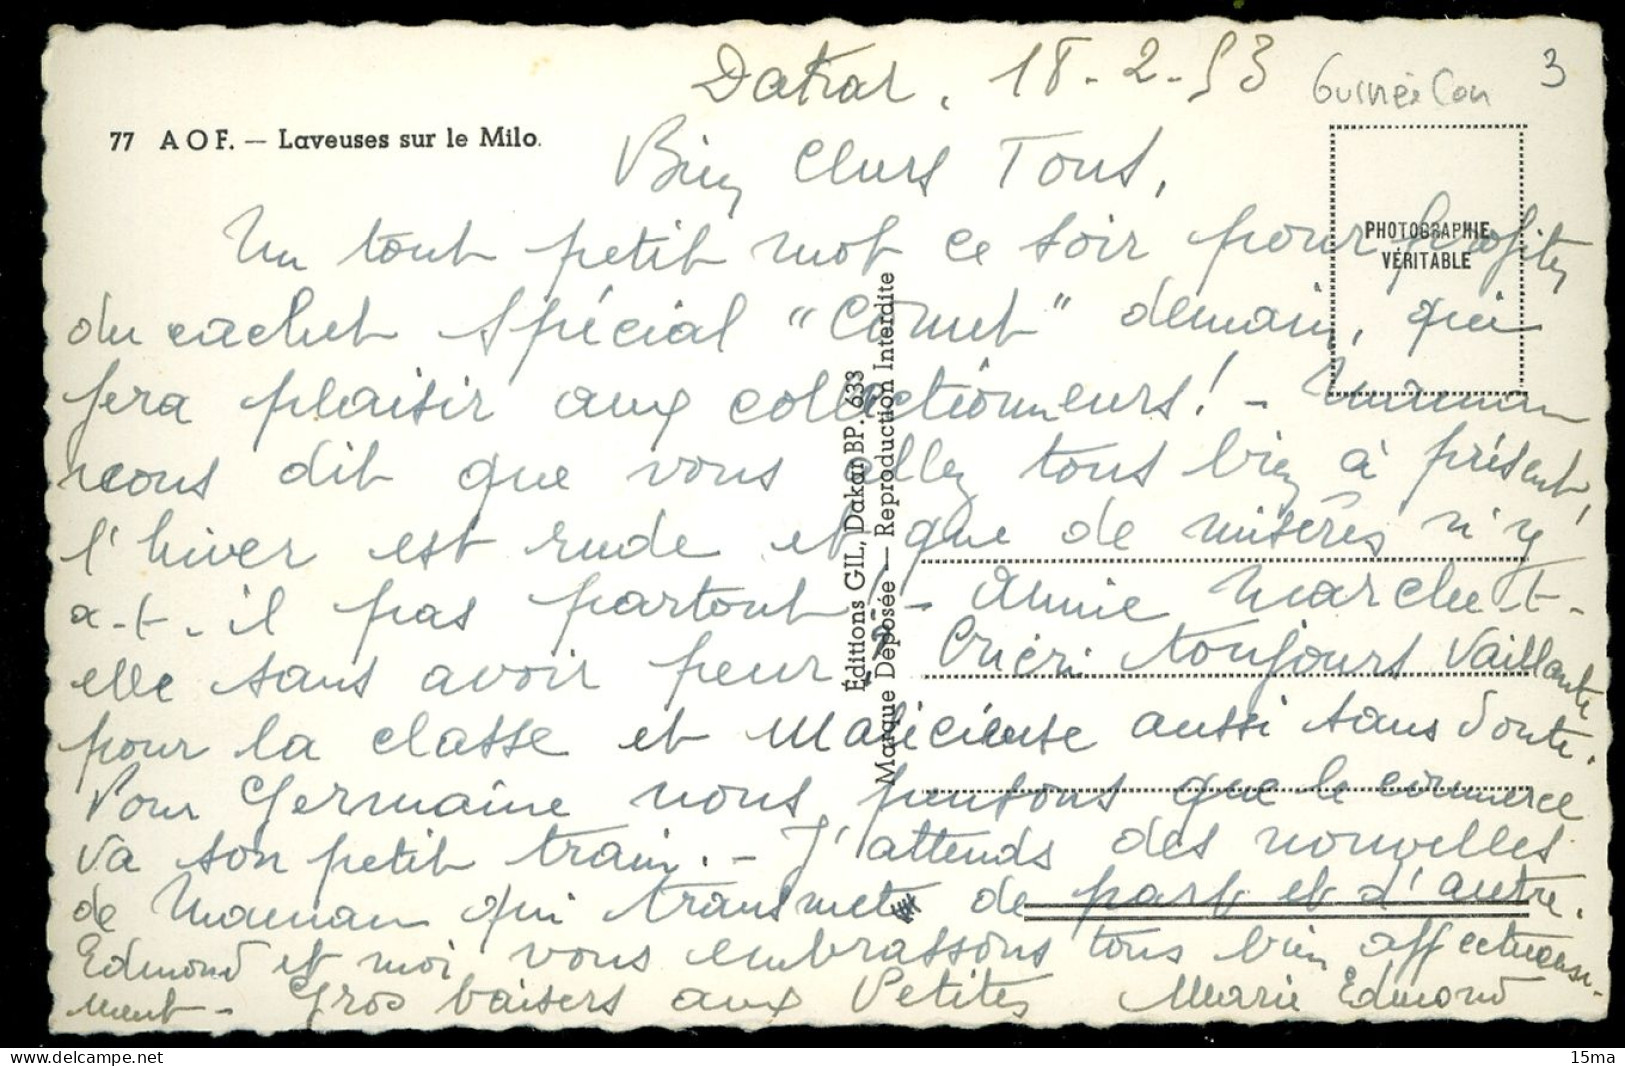 Dakar, 18-2-53
Guinée Con
3
77 AOF. — Laveuses sur le Milo.
PHOTOGRAPHIE
VÉRITABLE
Bien Chers Tous,
Un tout petit mot ce soir pour profiter
du cachet spécial "Comet" demain, qui
fera plaisir aux collectionneurs! - Maman
nous dit que vous allez tous bien à présent,
l'hiver est rude et que de misères n'y
a-t-il pas partout! - Annie marche-t-
elle sans avoir peur? toujours Vaillante
pour la classe et malicieuse aussi sans doute.
Pour Germaine nous pensons que le commerce
va son petit train. - J'attends des nouvelles
de Maman qui transmet de part et d'autre.
Edmond et moi vous embrassons tous bien affectueuse-
ment - Gros baisers aux Petites Marie Edmond
Éditions GIL, Dakar BP. 633
Marque Déposée — Reproduction Interdite
15ma